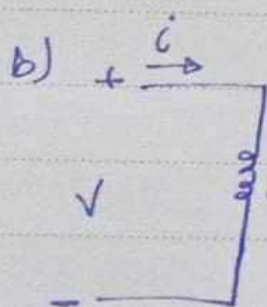 b) + i
V
-